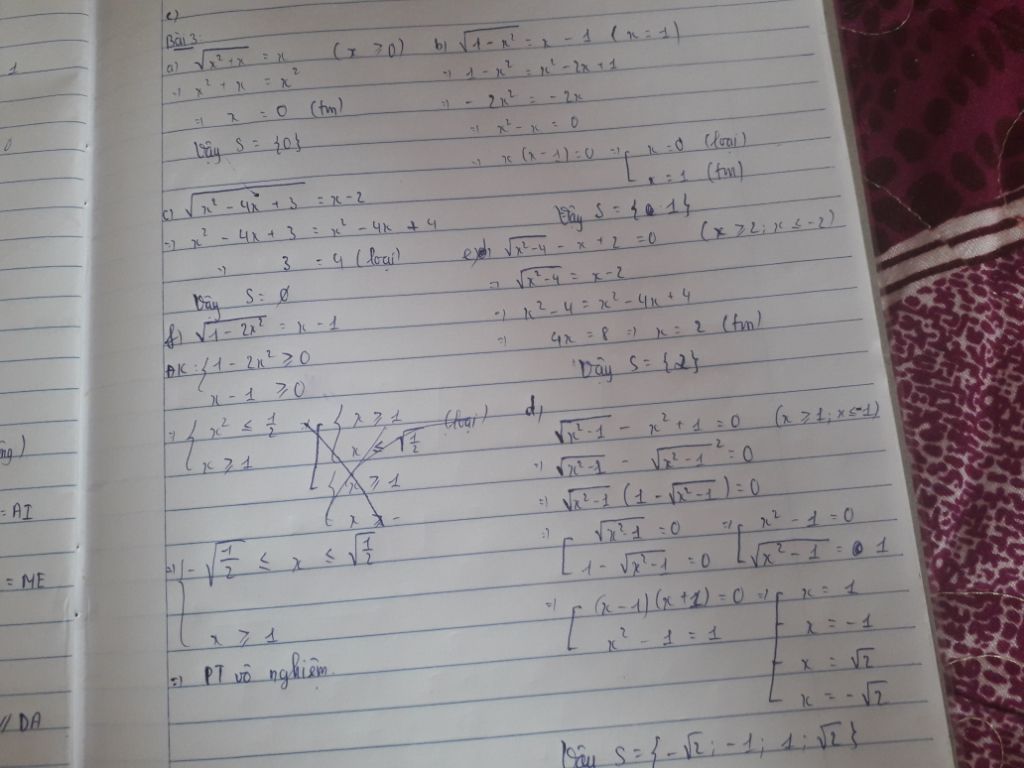 c)
Bài 3:
a) √(x²+x) = x (x ≥ 0)
=> x² + x = x²
=> x = 0 (tm)
Vậy S = {0}
b) √(1-x²) = x - 1 (x = 1)
=> 1 - x² = x² - 2x + 1
=> - 2x² = - 2x
=> x² - x = 0
=> x (x - 1) = 0 => [ x = 0 (loại)
x = 1 (tm)
Vậy S = {1}
c) √(x² - 4x + 3) = x - 2
=> x² - 4x + 3 = x² - 4x + 4
=> 3 = 4 (loại)
Vậy S = ∅
e) √(x²-4) - x + 2 = 0 (x ≥ 2; x ≤ -2)
=> √(x²-4) = x - 2
=> x² - 4 = x² - 4x + 4
=> 4x = 8 => x = 2 (tm)
Vậy S = {2}
f) √(1 - 2x²) = x - 1
ĐK: { 1 - 2x² ≥ 0
x - 1 ≥ 0
=> { x² ≤ 1/2
x ≥ 1
[ { x ≥ 1
x ≤ √(1/2) (loại)
{ x ≥ 1
x
=> { -√(1/2) ≤ x ≤ √(1/2)
x ≥ 1
=> PT vô nghiệm
d, √(x²-1) - x² + 1 = 0 (x ≥ 1; x ≤ -1)
=> √(x²-1) - √(x²-1)² = 0
=> √(x²-1) (1 - √(x²-1)) = 0
=> [ √(x²-1) = 0 => [ x² - 1 = 0
1 - √(x²-1) = 0 √(x²-1) = 1
=> [ (x-1)(x+1) = 0 => [ x = 1
x² - 1 = 1 x = -1
x = √2
x = -√2
Vậy S = {-√2; -1; 1; √2}
1
0
= AI
= ME
// DA